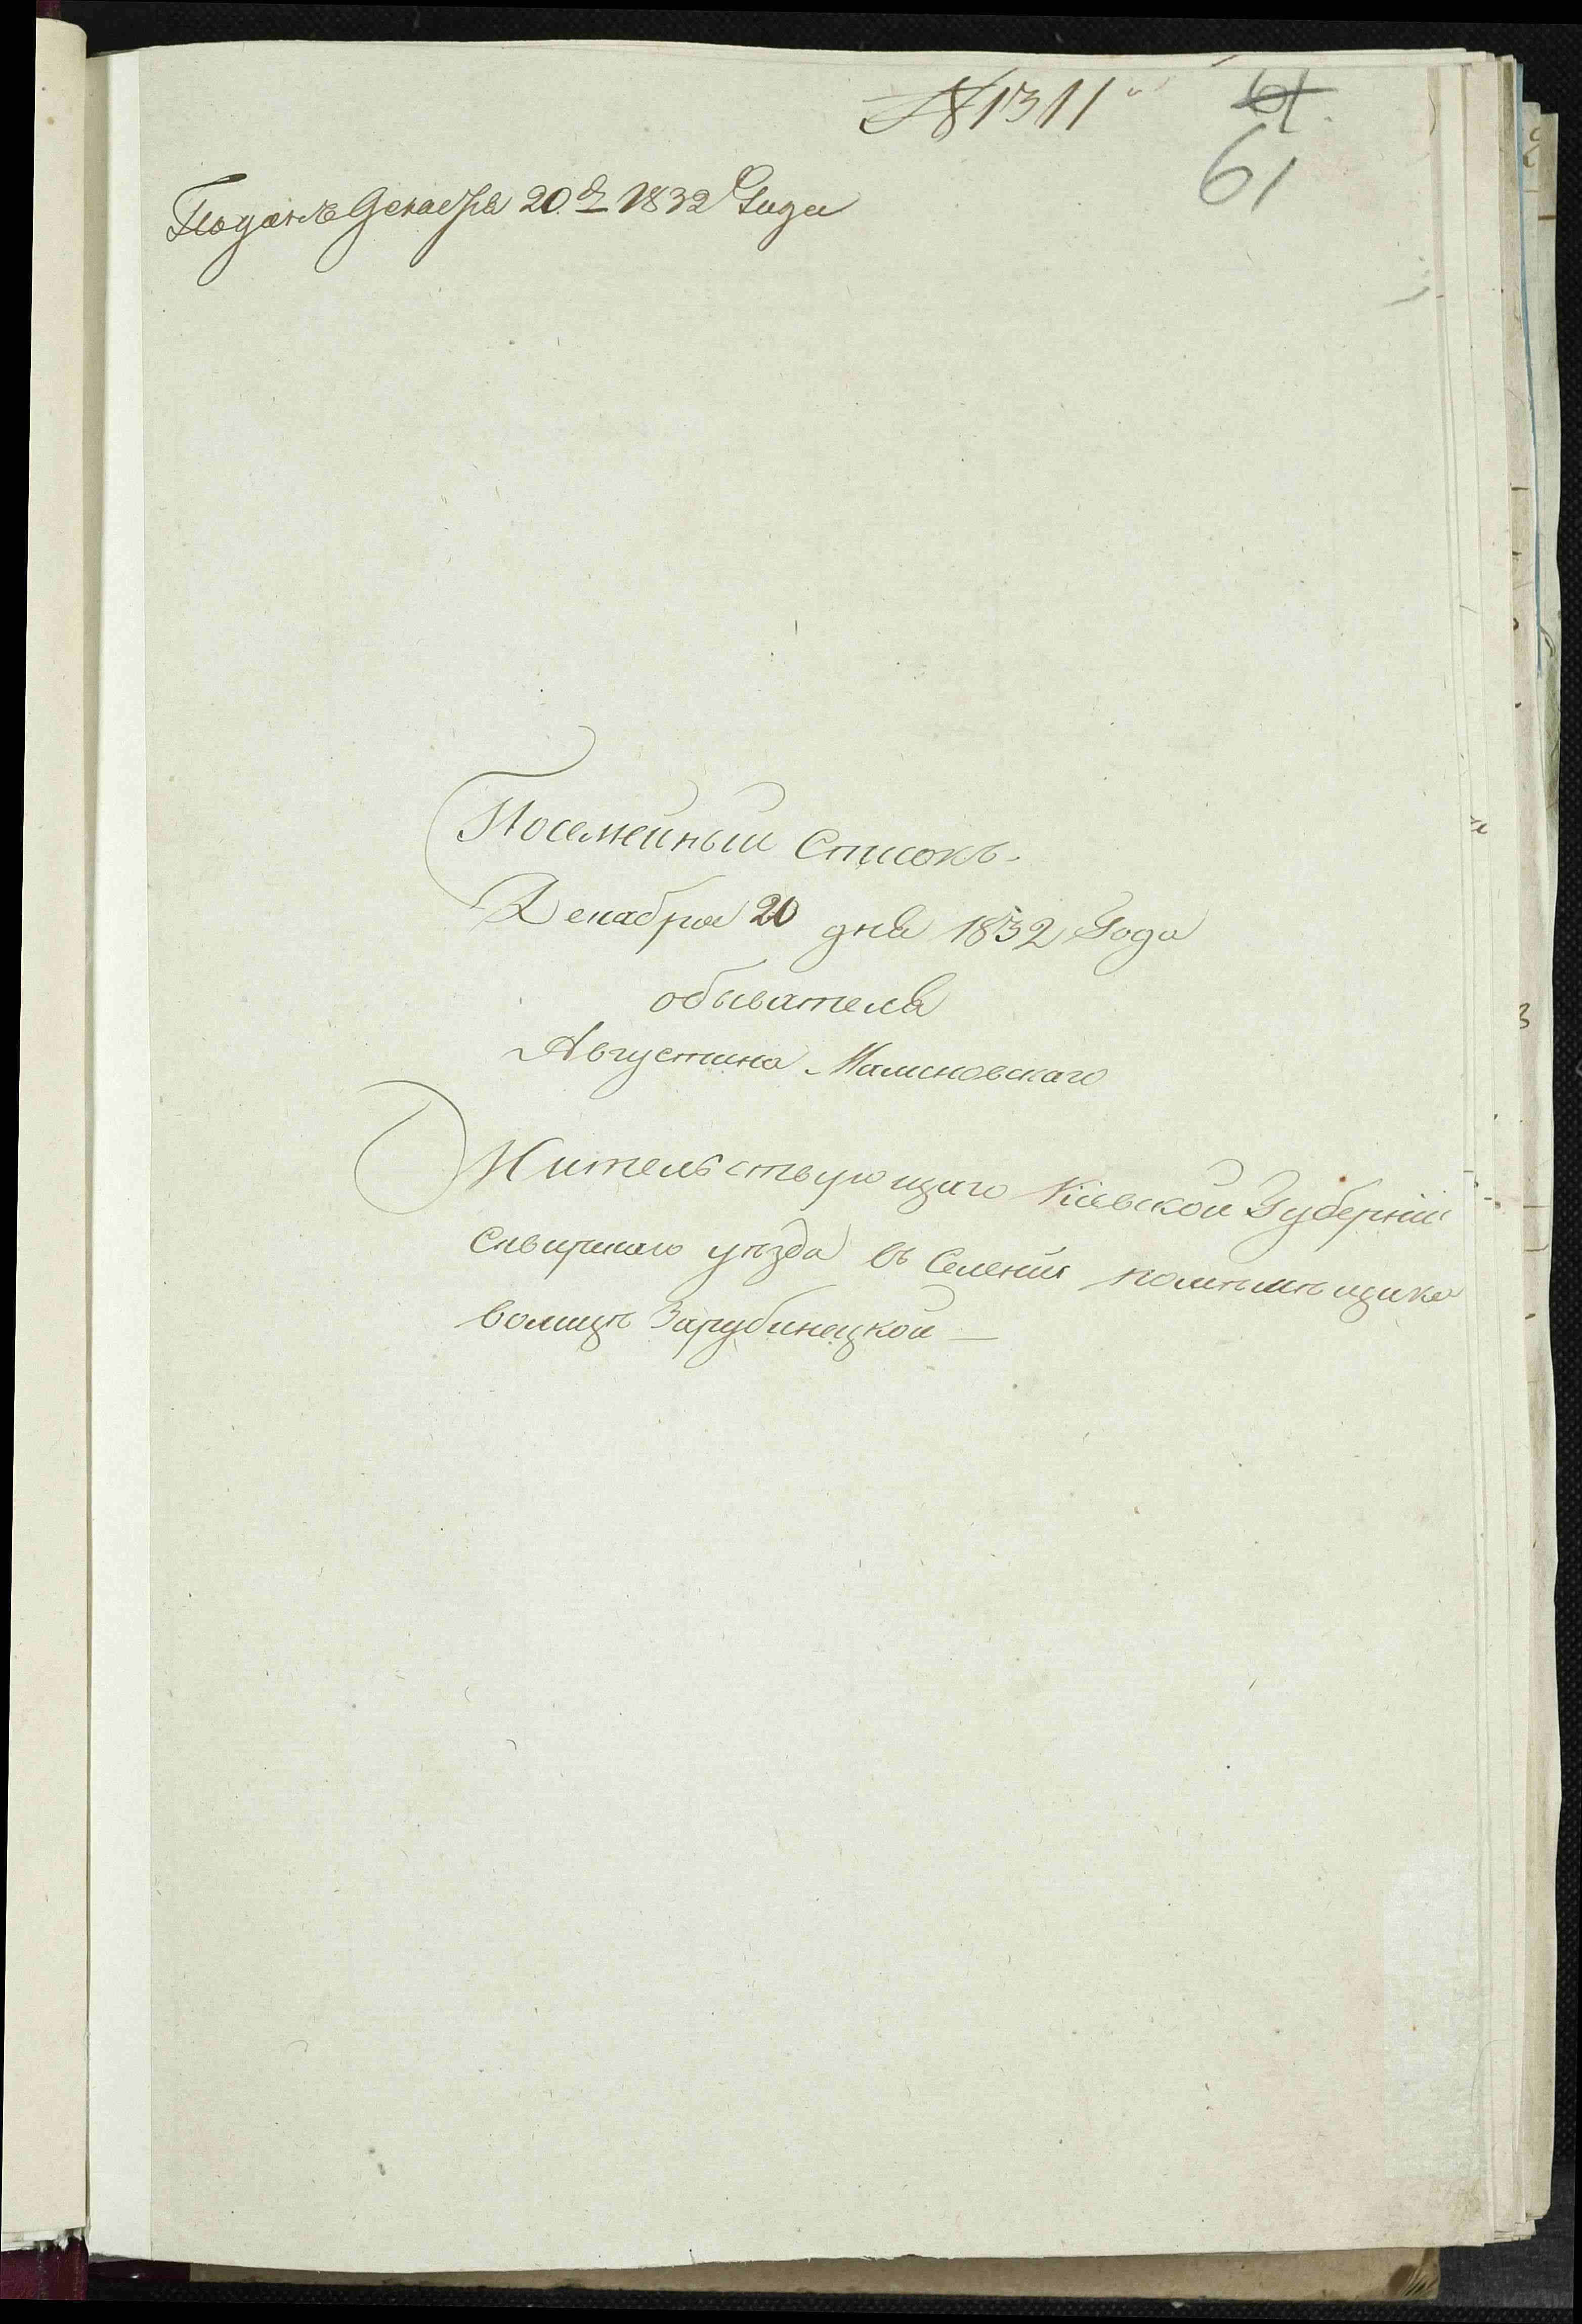 № 1311
61.
61
Поданъ Декабря 20 д 1832 Года
Посемейный Списокъ
Декабря 20 дня 1832 Года
обывателя
Августина Малиновскаго
Жительствующаго Кіевской Губерніи
Сквирскаго уѣзда въ Селеніи помѣщика
волицѣ Зарубинецкой —